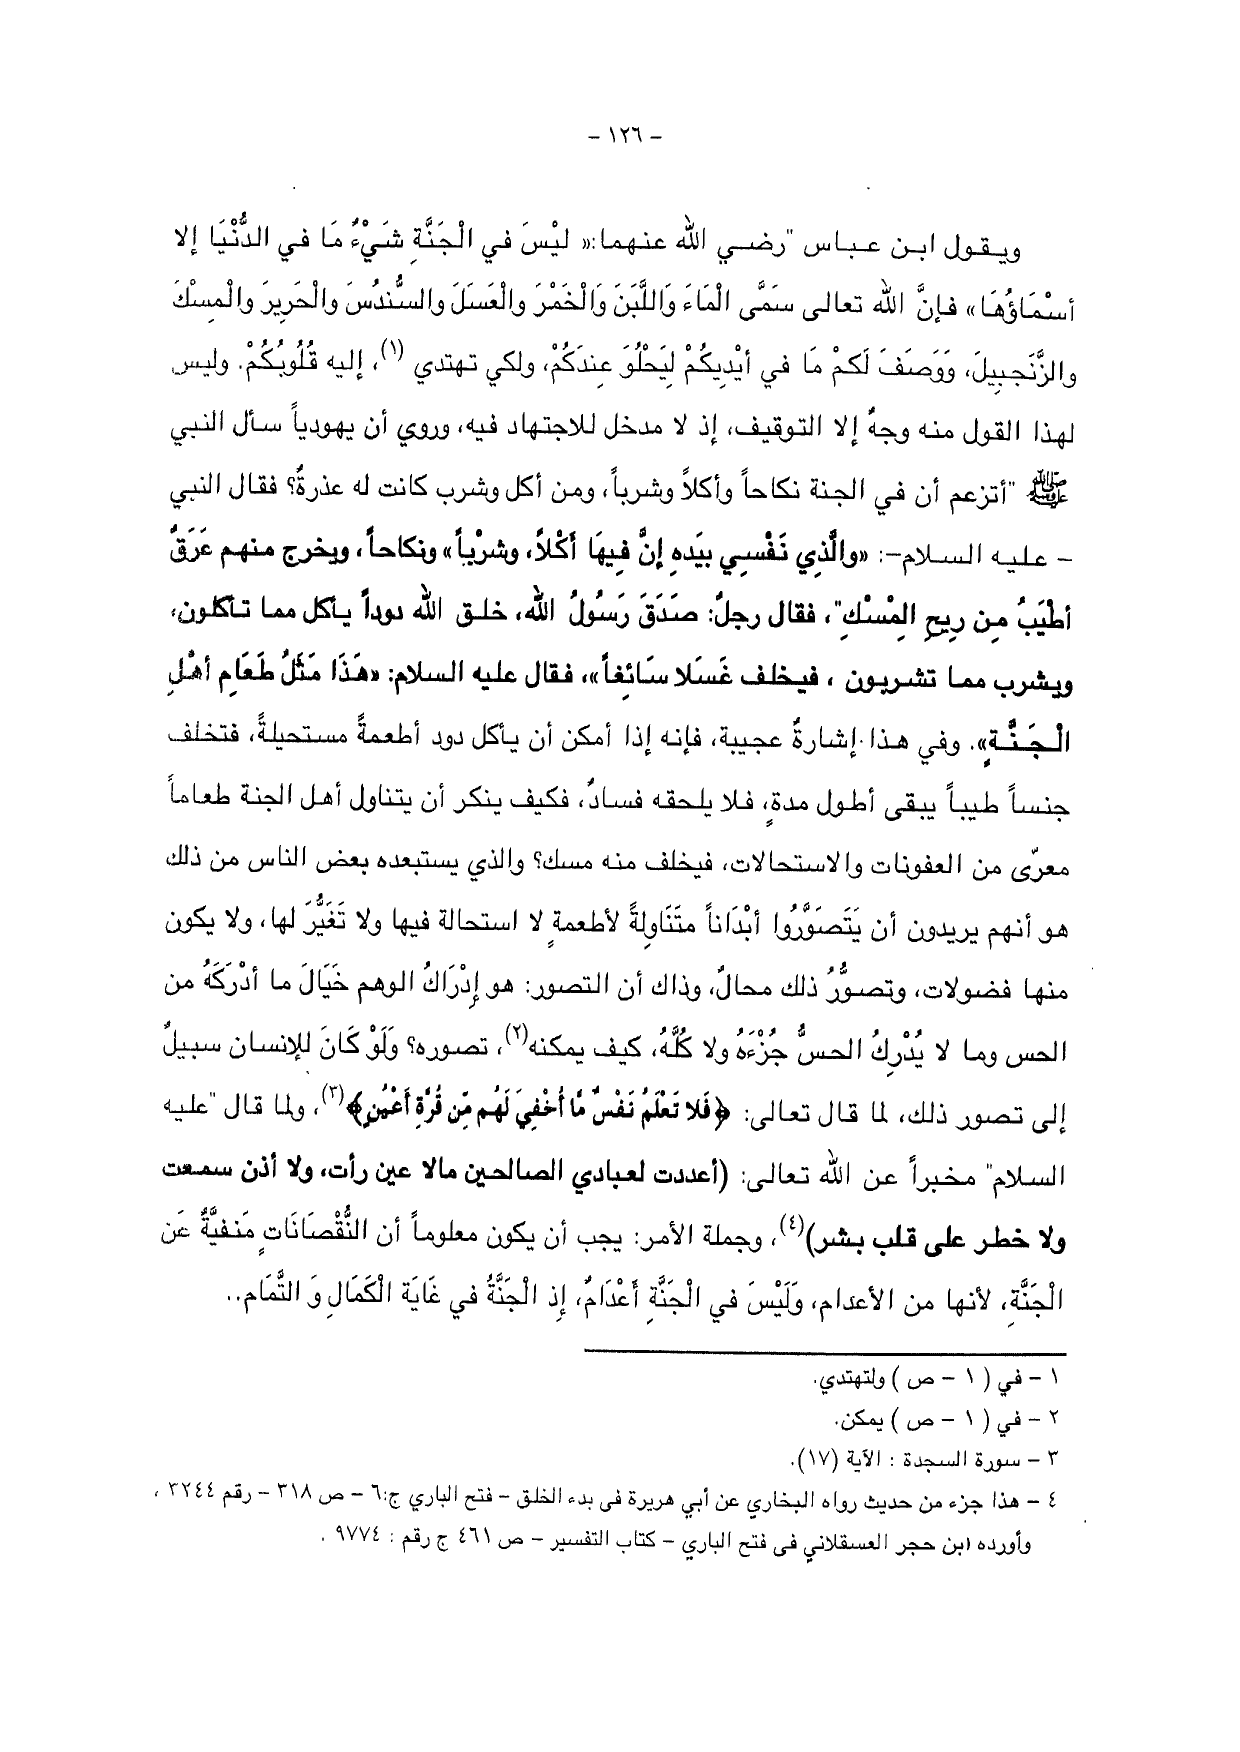 - ١٢٦ -
ويقول ابن عباس "رضي الله عنهما:« لَيْسَ في الْجَنَّةِ شَيْءٌ مَا في الدُّنْيَا إلا
أسْمَاؤُهَا» فإنَّ الله تعالى سَمَّى الْمَاءَ وَاللَّبَنَ وَالْخَمْرَ والْعَسَلَ والسُّندُسَ والْحَرِيرَ والْمِسْكَ
والزَّنْجبِيلَ، وَوَصَفَ لَكُمْ مَا في أيْدِيكُمْ لِيَحْلُوَ عِندَكُمْ، ولكي تهتدي (١)، إليه قُلُوبُكُمْ. وليس
لهذا القول منه وجهٌ إلا التوقيف، إذ لا مدخل للاجتهاد فيه، وروي أن يهودياً سأل النبي
ﷺ "أتزعم أن في الجنة نكاحاً وأكلاً وشرباً، ومن أكل وشرب كانت له عذرةٌ؟ فقال النبي
- عليه السلام-: «والَّذِي نَفْسِي بِيَدِه إنَّ فِيهَا أكْلاً، وشُرْباً» ونكاحاً، ويخرج منهم عَرَقٌ
أطْيَبُ مِن رِيحِ الْمِسْكِ"، فقال رجلٌ: صَدَقَ رَسُولُ الله، خلق الله دوداً يأكل مما تأكلون،
ويشرب مما تشربون ، فيخلف عَسَلا سَائغاً»، فقال عليه السلام: «هَذَا مَثَلُ طَعَامِ أهْلِ
الْجَنَّةِ». وفي هذا إشارةٌ عجيبة، فإنه إذا أمكن أن يأكل دود أطعمةً مستحيلةً، فتخلف
جنساً طيباً يبقى أطول مدةٍ، فلا يلحقه فسادٌ، فكيف ينكر أن يتناول أهل الجنة طعاماً
معرّى من العفونات والاستحالات، فيخلف منه مسك؟ والذي يستبعده بعض الناس من ذلك
هو أنهم يريدون أن يَتَصَوَّرُوا أبْدَاناً متَنَاوِلةً لأطعمةٍ لا استحالة فيها ولا تَغَيُّرَ لها، ولا يكون
منها فضولات، وتصوُّرُ ذلك محالٌ، وذاك أن التصور: هو إدْرَاكُ الوهم خَيَالَ ما أدْرَكَهُ من
الحس وما لا يُدْرِكُ الحسُّ جُزْءَهُ ولا كُلَّهُ، كيف يمكنه(٢)، تصوره؟ وَلَوْ كَانَ للإنسان سبيلٌ
إلى تصور ذلك، لما قال تعالى: ﴿فَلَا تَعْلَمُ نَفْسٌ مَّا أُخْفِيَ لَهُم مِّن قُرَّةِ أَعْيُنٍ﴾(٣)، ولما قال "عليه
السلام" مخبراً عن الله تعالى: (أعددت لعبادي الصالحين مالا عين رأت، ولا أذن سمعت
ولا خطر على قلب بشر)(٤)، وجملة الأمر: يجب أن يكون معلوماً أن النُّقْصَانَاتِ مَنفيَّةٌ عَن
الْجَنَّةِ، لأنها من الأعدام، وَلَيْسَ في الْجَنَّةِ أَعْدَامٌ، إذِ الْجَنَّةُ في غَايَةِ الْكَمَالِ وَ التَّمَام..
١ - في ( ١ - ص ) ولتهتدي.
٢ - في ( ١ - ص ) يمكن.
٣ - سورة السجدة : الآية (١٧).
٤ - هذا جزء من حديث رواه البخاري عن أبي هريرة في بدء الخلق - فتح الباري ج:٦ - ص ٣١٨ - رقم ٣٢٤٤ ،
وأورده ابن حجر العسقلاني في فتح الباري - كتاب التفسير - ص ٤٦١ ج رقم : ٩٧٧٤ .